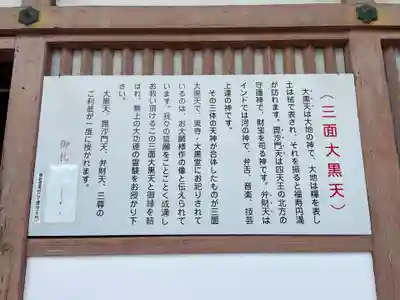 （三面大黒天）
大黒天は大地の神で、大地は糧を表し
土は毬で表され、それを振ると福寿円満
が訪れます。毘沙門天は四天王の北方の
守護神で、財宝を司る神です。弁財天は
インドでは河の神で、弁舌、音楽、技芸
上達の神です。
その三体の天神が合体したものが三面
大黒天で、東寺・大黒堂にお祀りされて
いるのは、お大師様作の像と伝えられて
います。我々の誓願をことごとく成満し
お救い頂けるこの三面大黒天と御縁を結
ばれ、無上の大功徳の霊験をお授かり下
さい。
大黒天、毘沙門天、弁財天、三尊の
ご利益が一度に授かれます。
御札